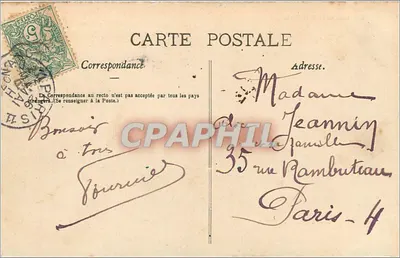 CARTE POSTALE
Correspondance
La Correspondance au recto n'est pas acceptée par tous les pays
étrangers. (Se renseigner à la Poste.)
Bonsoir
à tous
Adresse.
Madame
Jeannin
35 rue Rambuteau
Paris-4
PARIS
5
CPAPHIL